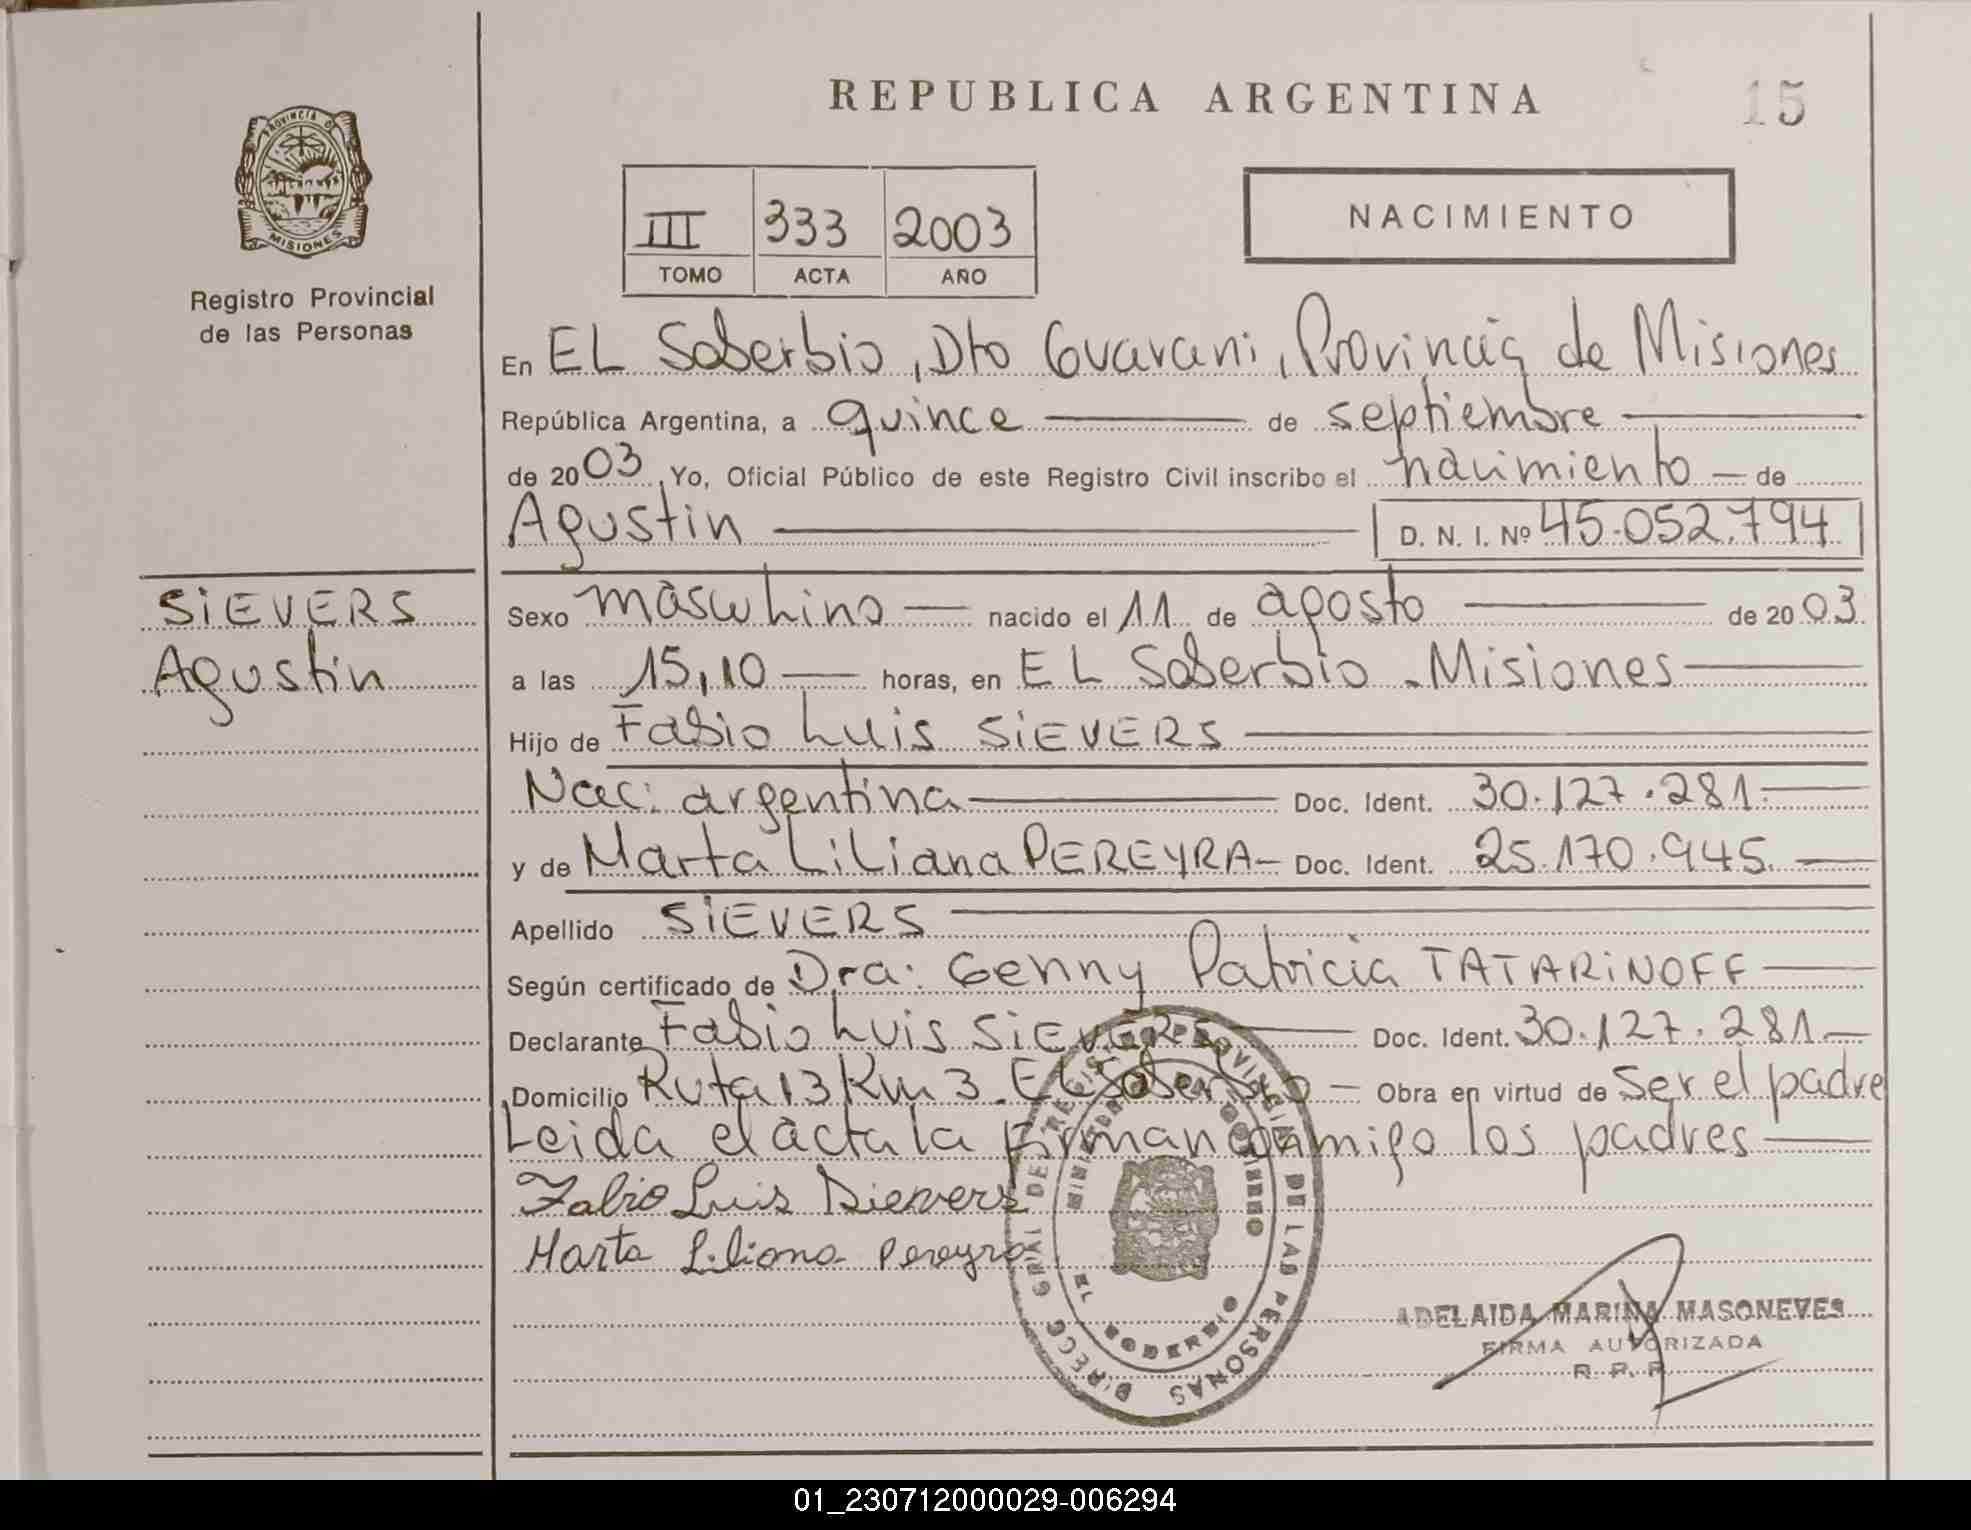 REPUBLICA ARGENTINA
15
PROVINCIA D
MISIONES
Registro Provincial
de las Personas
III 333 2003
TOMO ACTA AÑO
NACIMIENTO
En EL Soberbio, Dto Guarani, Provincia de Misiones
República Argentina, a quince de septiembre
de 2003, Yo, Oficial Público de este Registro Civil inscribo el nacimiento de
Agustin D. N. I. Nº 45.052.794
SiEVERS
Agustin
Sexo masculino nacido el 11 de agosto de 2003
a las 15,10 horas, en EL Soberbio - Misiones
Hijo de Fabio Luis SiEVERS
Nac: argentina Doc. Ident. 30.127.281.
y de Marta Liliana PEREYRA Doc. Ident. 25.170.945.
Apellido SiEVERS
Según certificado de Dra: Genny Patricia TATARiNOFF
Declarante Fabio Luis SiEVERS Doc. Ident. 30.127.281
Domicilio Ruta 13 Km 3. EL Soberbio Obra en virtud de ser el padre
Leida el acta la firman conmigo los padres
Fabio Luis Sievers
Marta Liliana Pereyra
DIRECC GRAL DEL REGISTRO PROVINCIAL DE LAS PERSONAS
MINISTERIO DE GOBIERNO
EL SOBERBIO
ADELAIDA MARINA MASONEVES
FIRMA AUTORIZADA
R. P. P.
01_230712000029-006294